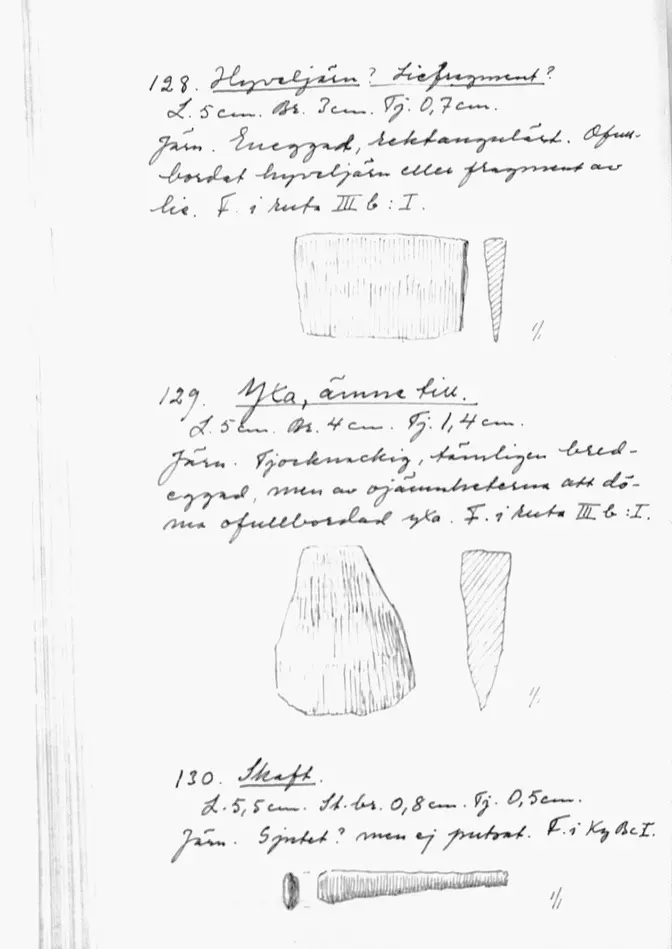 128. Hyveljärn? Liefragment?
L. 5 cm. Br. 3 cm. Tj. 0,7 cm.
Järn. Eneggad, rektangulärt. Ofull-
bordat hyveljärn eller fragment av
lie. F. i ruta III b : I.
1/1
129. Yxa, ämne till.
L. 5 cm. Br. 4 cm. Tj. 1,4 cm.
Järn. Tjocknackig, tämligen bred-
eggad, men av ojämnheterna att dö-
ma ofullbordad yxa. F. i ruta III b : I.
1/1
130. Skaft.
L. 5,5 cm. St. br. 0,8 cm. Tj. 0,5 cm.
Järn. Gjutet? men ej putsat. F. i Ky Bc I.
1/1